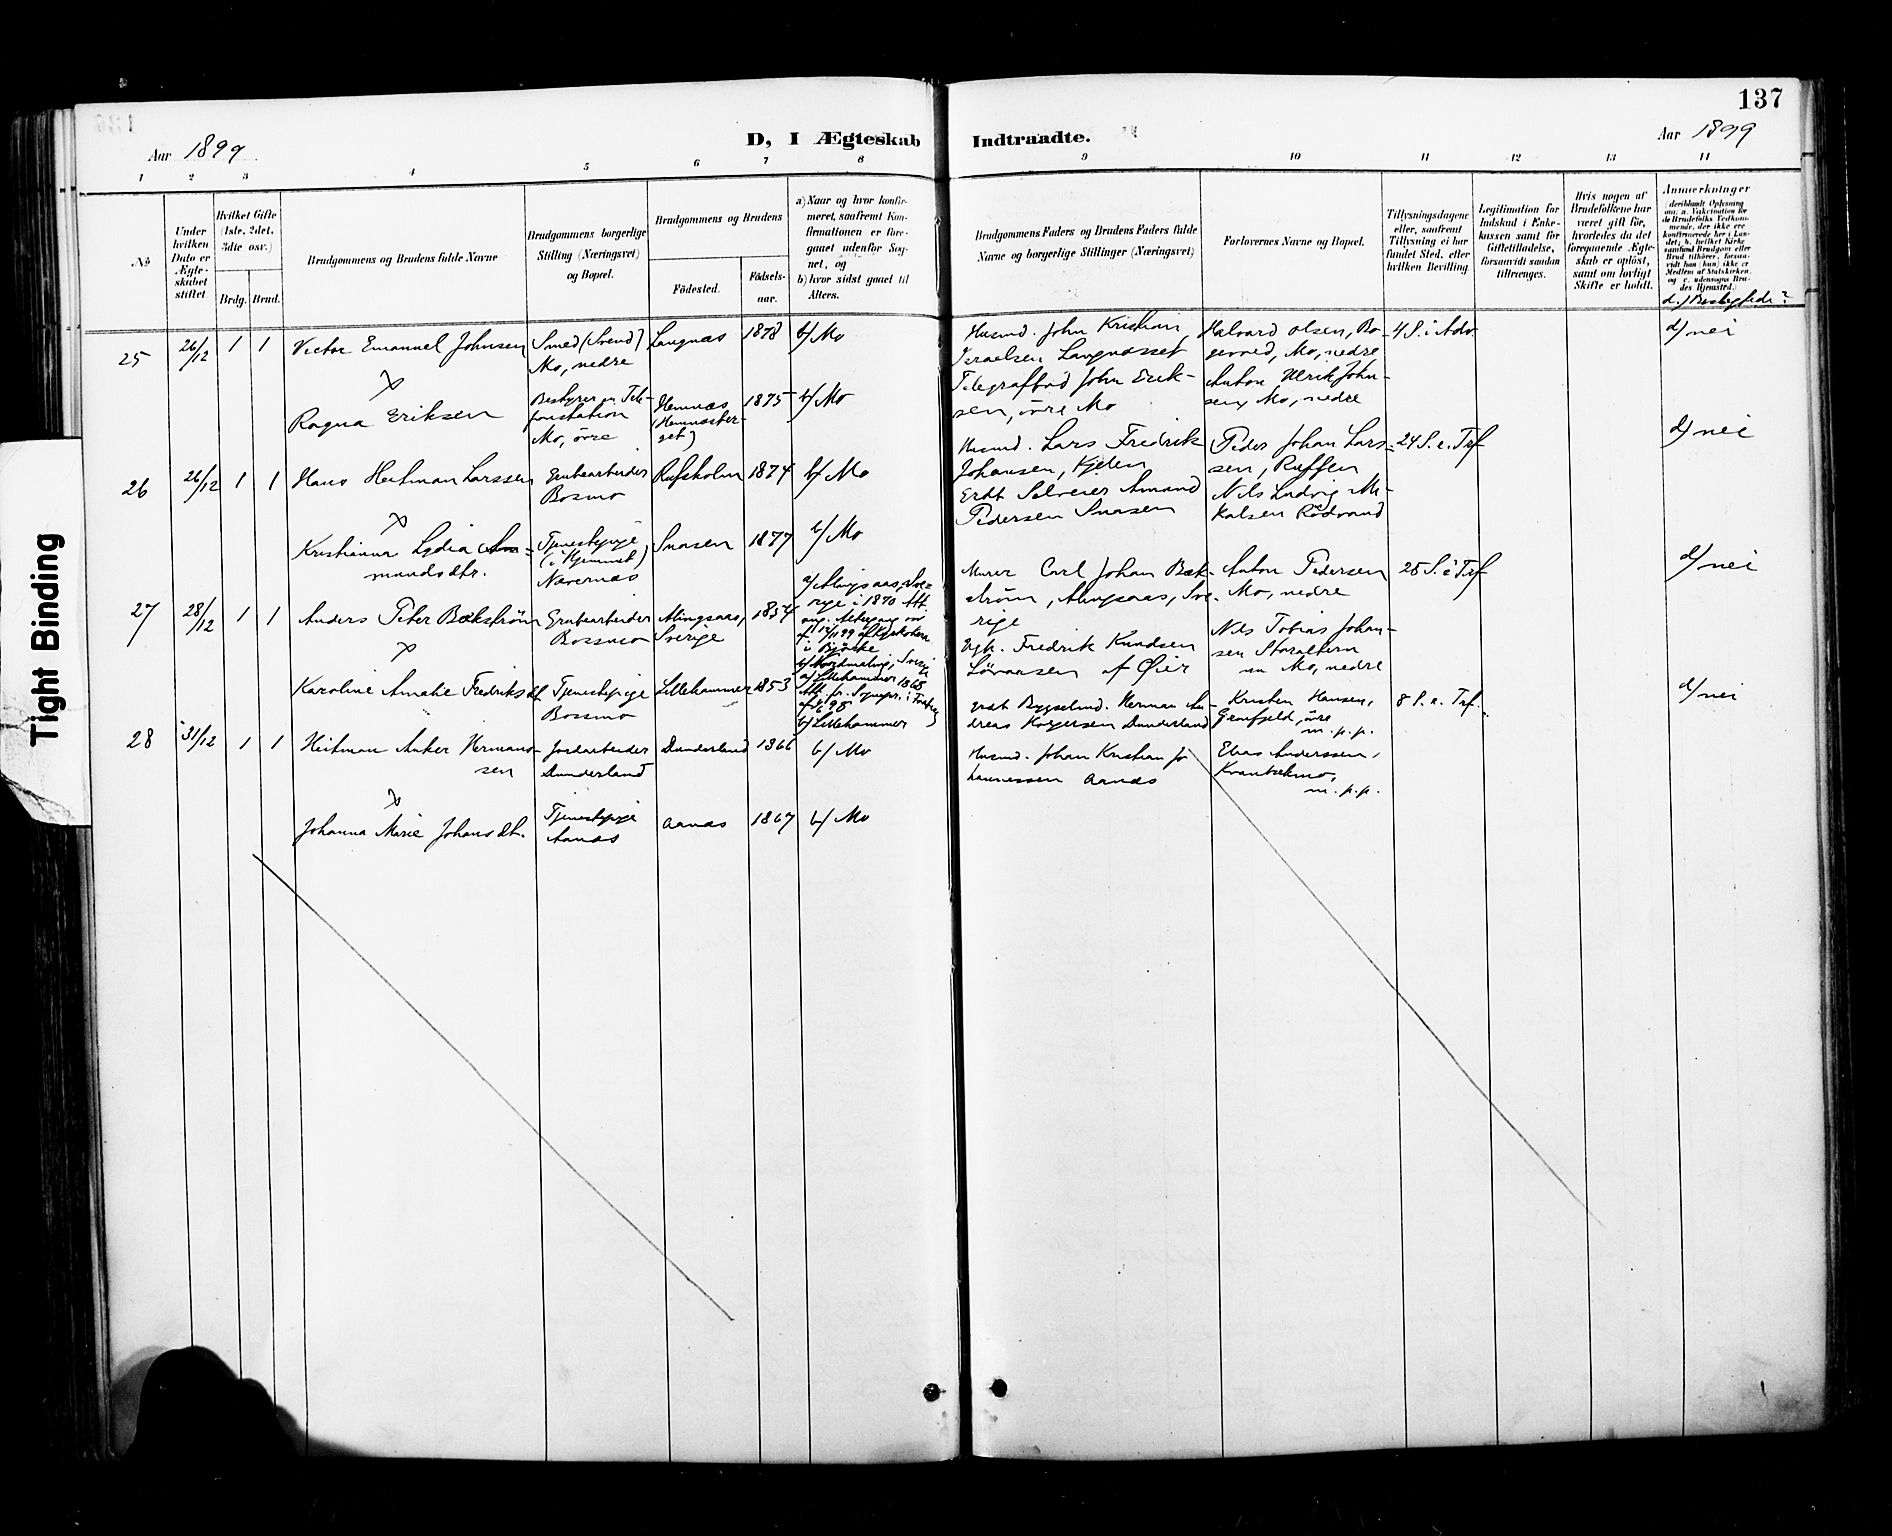 137
Aar 1899
D, I Ægteskab
Indtraadte.
Aar 1899
1 2 3 4 5 6 7 8 9 10 11 12 13 14
No
Under hvilken Dato er Ægteskabet stiftet
Hvilket Gifte (1ste, 2det, 3die osv.)
Brdg. Brud.
Brudgommens og Brudens fulde Navne
Brudgommens borgerlige Stilling (Næringsvei) og Bopæl.
Brudgommens og Brudens
Fødested.
Fødselsaar.
a) Naar og hvor konfirmeret, saafremt Konfirmationen er foregaaet udenfor Sognet, og
b) hvor sidst gaaet til Alters.
Brudgommens Faders og Brudens Faders fulde Navne og borgerlige Stillinger (Næringsvei)
Forlovernes Navne og Bopæl.
Tillysningsdagene eller, saafremt Tillysning ei har fundet Sted, efter hvilken Bevilling.
Legitimation for Indskud i Enkekassen samt for Giftetilladelse, forsaavidt saadan tiltrænges.
Hvis nogen af Brudefolkene har været gift før, hvorledes da det foregaaende Ægteskab er opløst, samt om lovligt Skifte er holdt.
Anmærkninger
25
26/12
1 1
Victor Emanuel Johnsen
Smed (Svend)
Mo, nedre
Langnæs
1878
b/ Mo
Husmd. John Kristian
Israelsen Langnæsset
Halvard Olsen, Bo-
Mo, nedre
4 S. i Adv.
d/ nei
x
Ragna Eriksen
Bestyrer
Mo, øvre
Hemnæs
1875
b/ Mo
Telegrafbud John Erik-
sen, øvre Mo
Anton Ulrik John-
sen, Mo, nedre
26
26/12
1 1
Hans Heitman Larssen
Grubearbeider
Bosmo
Rufsholm
1874
b/ Mo
Husmd. Lars Fredrik
Johansen, Kjelen
Peder Johan Lars-
sen, Ruffen
24 S. e. Trf
d/ nei
x
Kristianna Lydia
mandsdtr.
Tjenestepige
(i Hjemmet)
Nævernæs
Snasen
1877
b/ Mo
Erdt Selveier Amand
Pedersen Snasen
Nils Ludvig Mi-
kalsen Rødvand
27
28/12
1 1
Anders Peter Bækstrøm
Grubearbeider
Bossmo
Alingsaas,
Sverige
1854
a/ Alingsaas, Sve-
rige i 1870 Att.
b/ Nordmaling, Sverige
Murer Carl Johan Bæk-
strøm, Alingsaas, Sve-
rige
Anton Pedersen
Mo, nedre
25 S. i Trf
d/ nei
x
Karoline Amalie Fredriksdt
Tjenestepige
Bossmo
Lillehammer
1853
a/ Lillehammer 1868
b/ Lillehammer
Fredrik Knudsen
af Øier
Nils Tobias Johan-
sen
Mo, nedre
28
31/12
1 1
Heitman Anker Hermans-
sen
Jordarbeider
Dunderland
Dunderland
1866
b/ Mo
Erdt Bygselmd. Herman An-
dreas Kaspersen Dunderland
Kristen Hansen,
Granfjeld, øvre
m. p. p.
8 S. e. Trf.
d/ nei
x
Johanna Marie Johansdt.
Tjenestepige
Aanæs
Aanæs
1867
b/ Mo
Husmd. Johan Kristian Jo
hannessen Aanæs
Elias Anderssen,
m. p. p.
Tight Binding